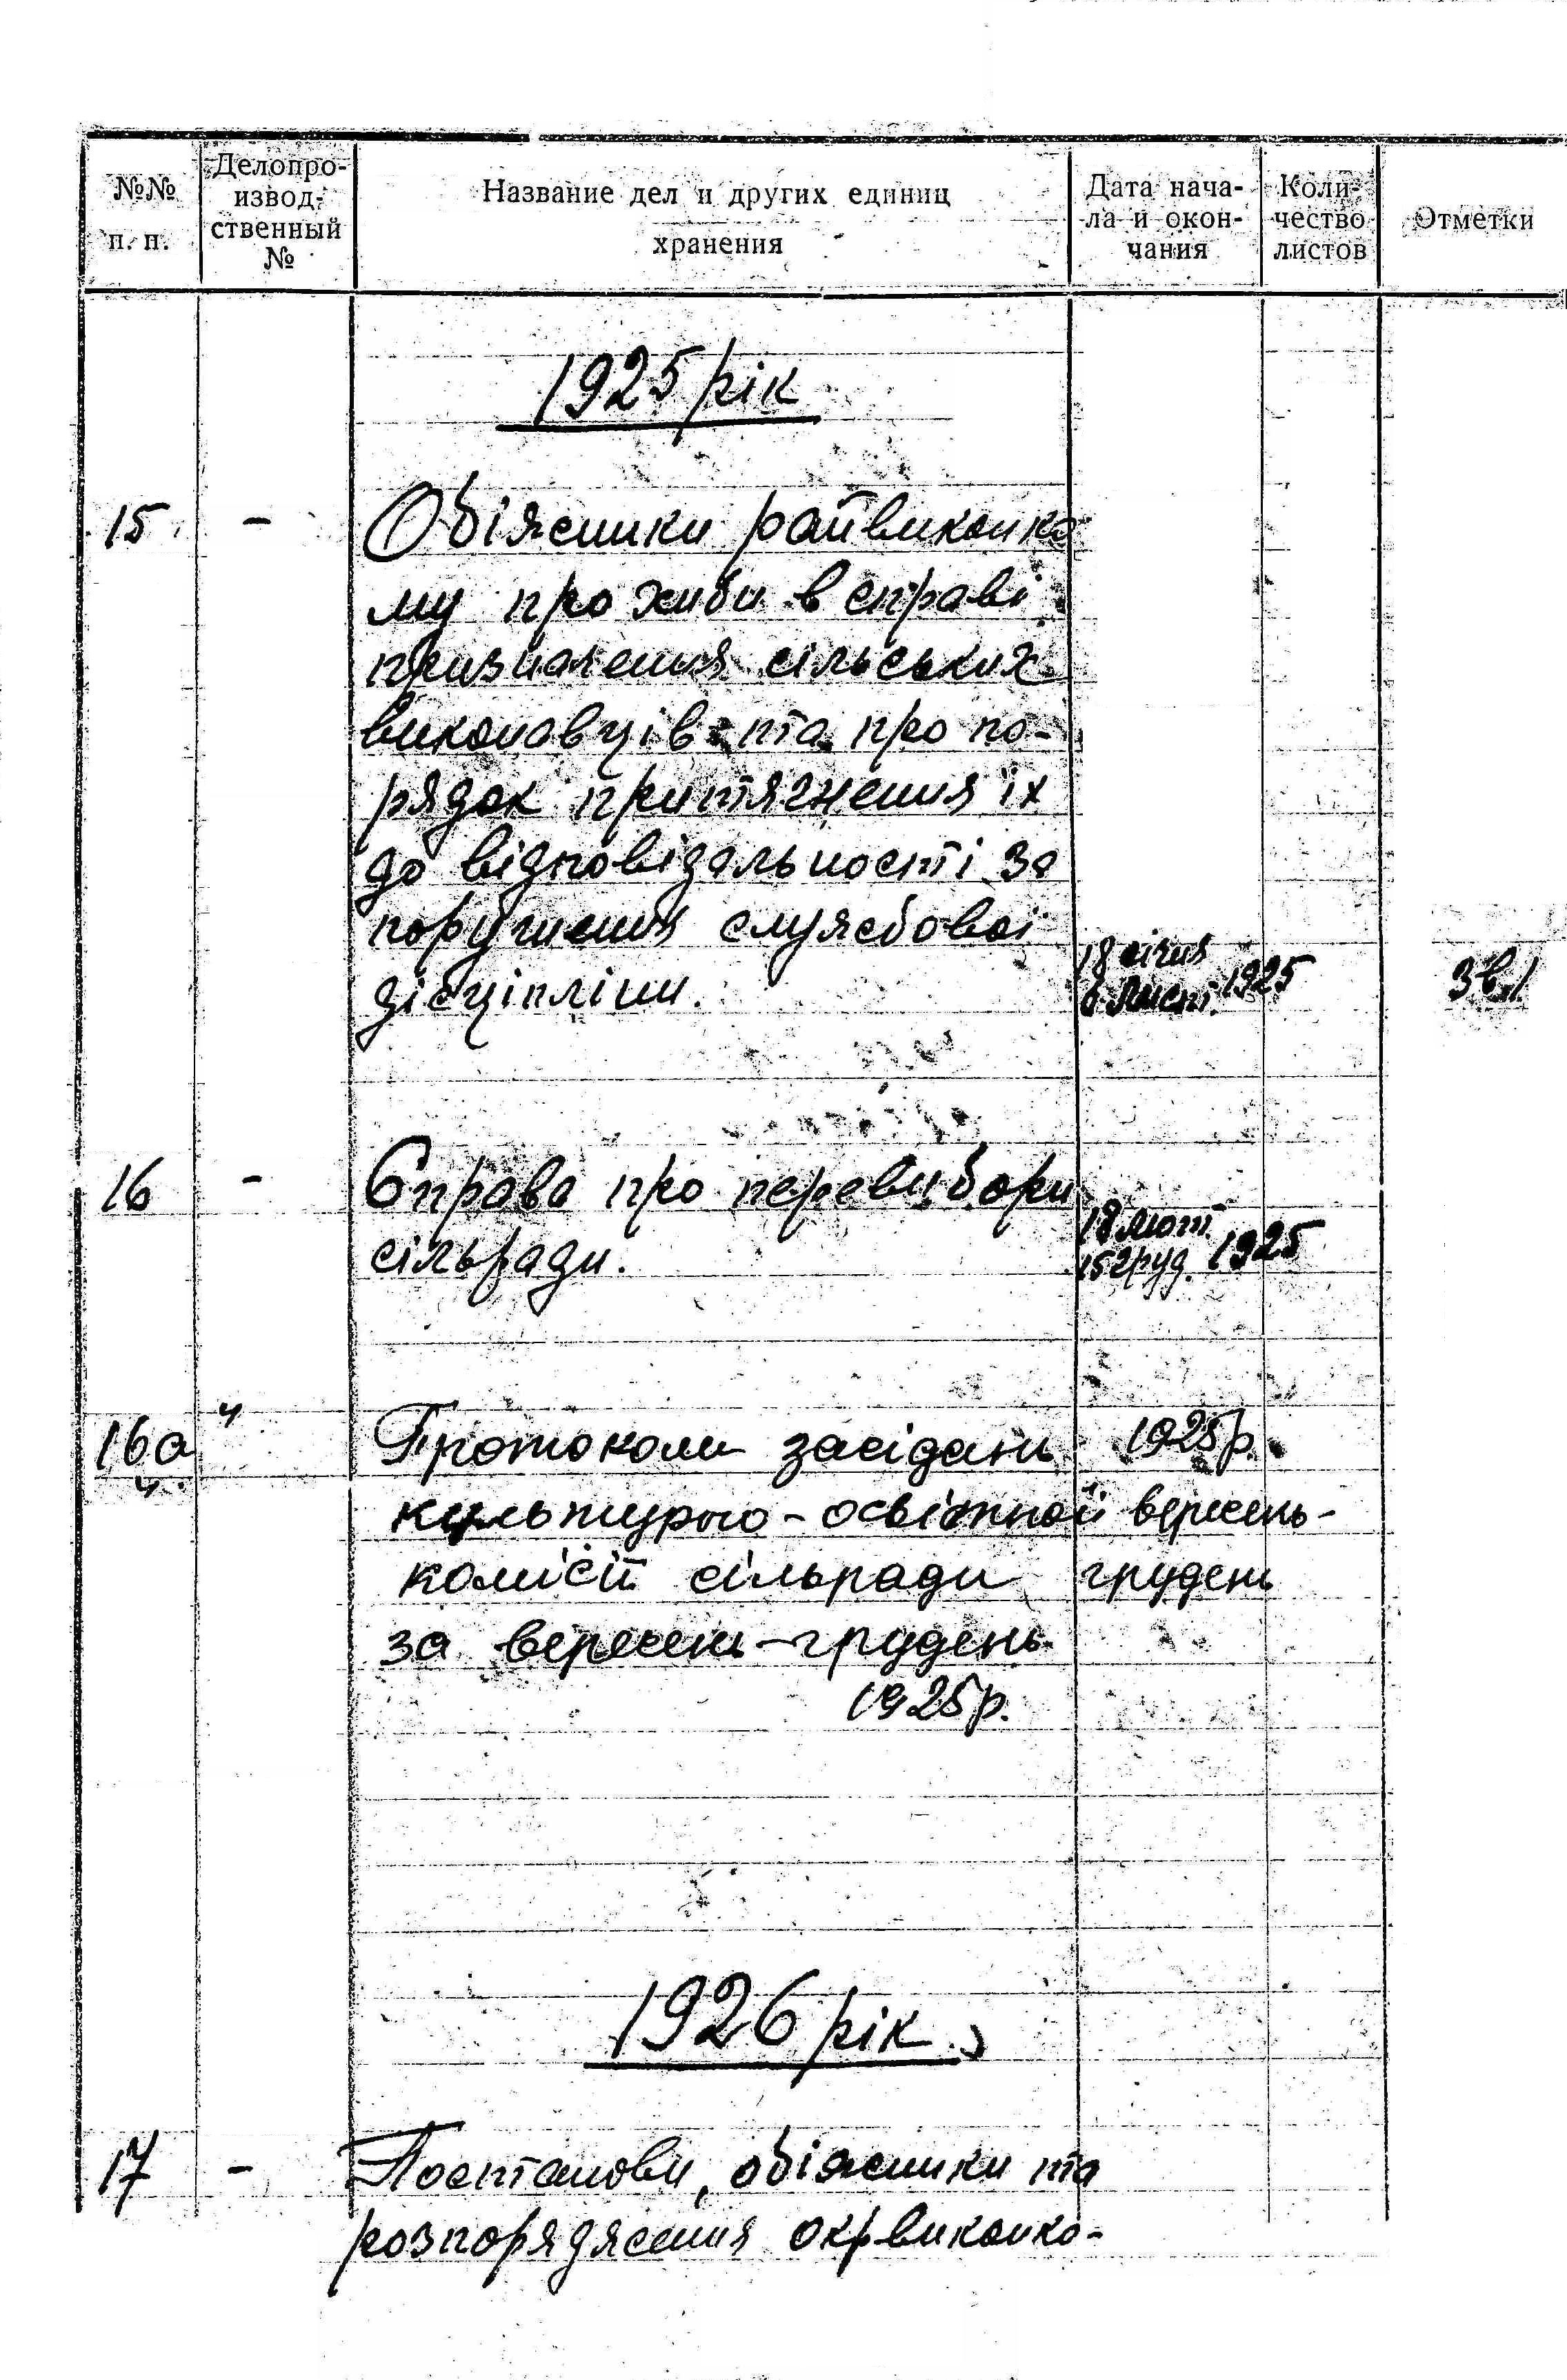 №№ п. п.
Делопро-
извод-
ственный
№
Название дел и других единиц
хранения
Дата нача-
ла и окон-
чания
Коли-
чество
листов
Отметки
1925 рік
15 - Обіжники райвиконко
му про хиби в справі
призначення сільських
виконавців та про по-
рядок притягнення їх
до відповідальності за
порушення службової
дісціпліни. 18 січня 6 лист. 1925 Зв.1
16 - Справа про перевибори
сільради. 18 лют. 15 груд. 1925
16а Протоколи засідань 1925р.
культурно-освітной вересень-
комісії сільради грудень
за вересень-грудень
1925р.
1926 рік
17 - Постанови, обіжники та
розпорядження окрвиконко-